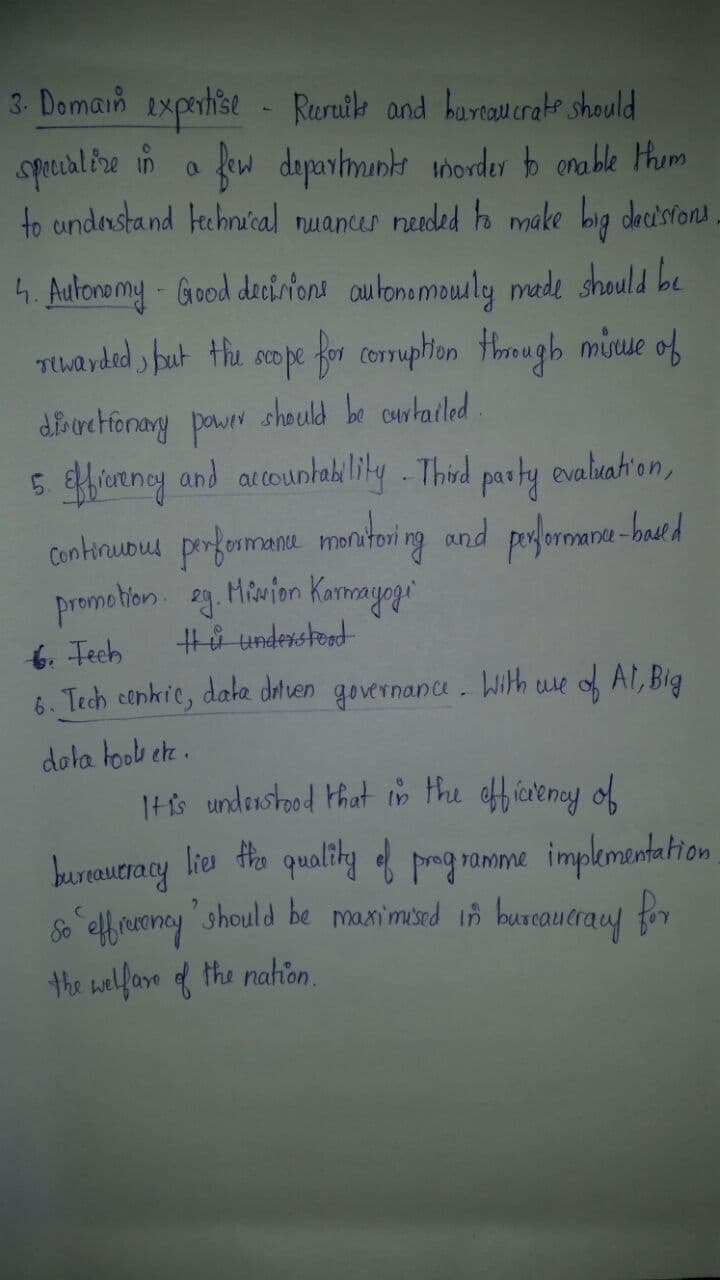 3. Domain expertise - Recruits and bureaucrats should
specialize in a few departments inorder to enable them
to understand technical nuances needed to make big decisions.
4. Autonomy - Good decisions autonomously made should be
rewarded, but the scope for corruption through misuse of
discretionary power should be curtailed.
5. Efficiency and accountability - Third party evaluation,
continuous performance monitoring and performance-based
promotion. eg. Mission Karmayogi
6. Tech It is understood
6. Tech centric, data driven governance - With use of AI, Big
data tools etc.
It is understood that in the efficiency of
bureaucracy lies the quality of programme implementation.
So 'efficiency' should be maximised in bureaucracy for
the welfare of the nation.